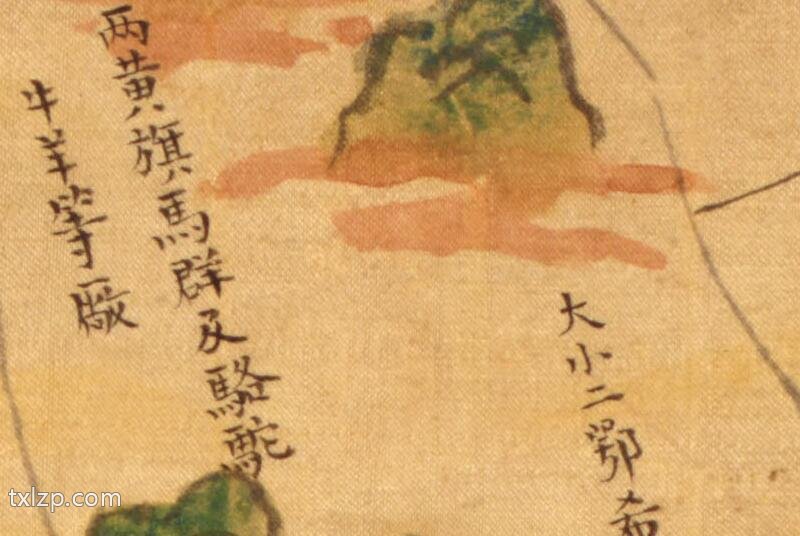 大小二鄂希
两黄旗馬群及駱駝
牛羊等廠
txlzp.com